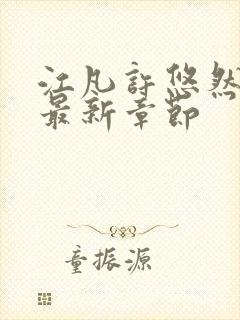 江凡許悠然
最新章節
童振源